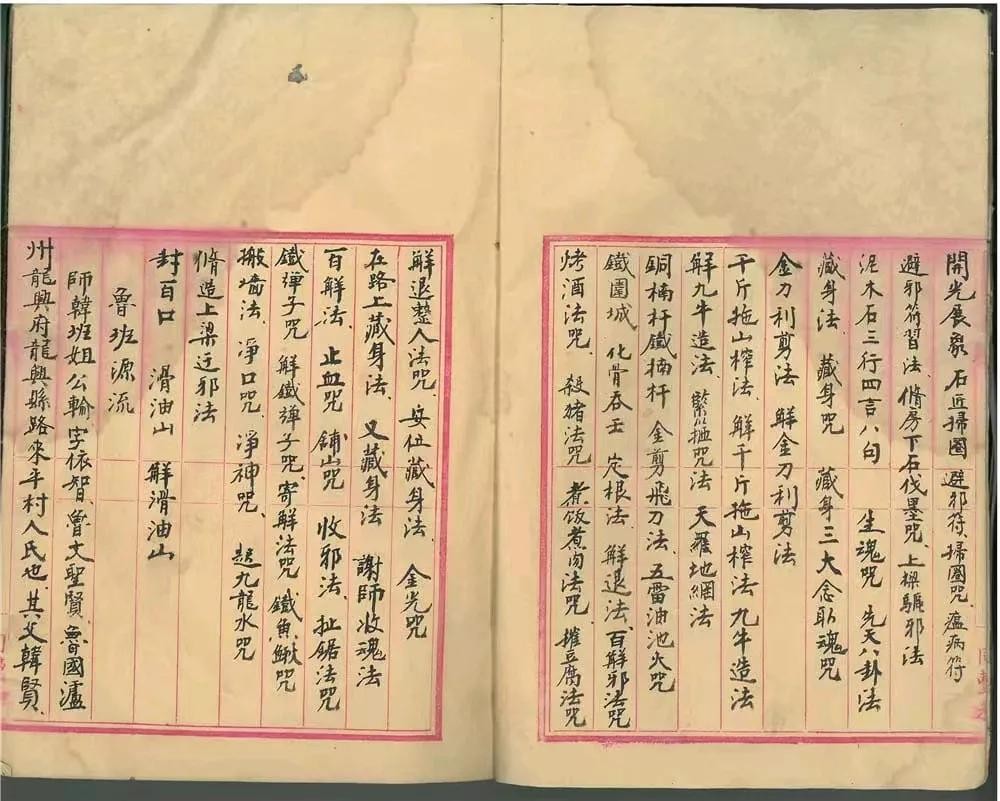 開光展象 石匠掃圈 避邪符掃圈咒、瘟病符
避邪符習法、脩房下石伐墨咒、上樑驅邪法
泥木石三行四言八句 生魂咒 先天八卦法
藏身法、藏身咒 藏身三大念臥魂咒
金刀利剪法 解金刀利剪法
千斤拖山榨法、解千斤拖山榨法 九牛造法
解九牛造法、緊揪咒法 天羅地網法
銅楠杆鐵楠杆 金剪飛刀法、五雷油池火咒
鐵圍城 化骨吞 定根法、解退法、百解邪法咒
烤酒法咒、殺猪法咒 煮饭煮肉法咒、推豆腐法咒
解退整人法咒、安位藏身法、金光咒
在路上藏身法、又藏身法 謝師收魂法
百解法、止血咒 鋪山咒 收邪法、扯鋸法咒
鐵彈子咒 解鐵彈子咒 寄解法咒 鐵魚鰍咒
搬墻法、凈口咒、凈神咒、起九龍水咒
脩造上梁迂邪法
封百口 滑油山 解滑油山
魯班源流
師韓班姐公輸字依智、魯文聖賢、魯國瀘
州龍興府龍興縣路來平村人氏也、其父韓賢、